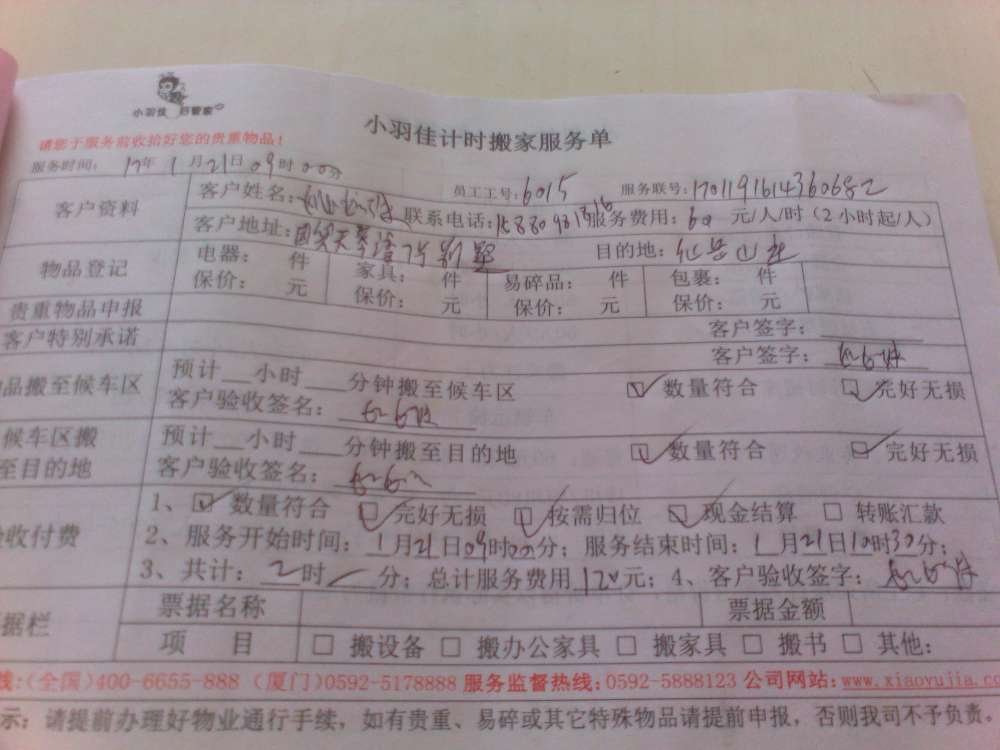 小羽佳 好管家
小羽佳计时搬家服务单
请您于服务前收拾好您的贵重物品!
服务时间: 17年 1月21日09时00分
员工工号:6015 服务联号:1701191614360682
客户资料 客户姓名: 联系电话: 服务费用: 60 元/人/时(2小时起/人)
客户地址: 目的地:
物品登记 电器: 件 家具: 件 易碎品: 件 包裹: 件
保价: 元 保价: 元 保价: 元 保价: 元
贵重物品申报 客户签字:
客户特别承诺 客户签字:
品搬至候车区 预计 小时 分钟搬至候车区 ☑ 数量符合 ☑ 完好无损
客户验收签名:
候车区搬 预计 小时 分钟搬至目的地 ☑ 数量符合 ☑ 完好无损
至目的地 客户验收签名:
收付费 1、☑ 数量符合 ☑ 完好无损 ☑ 按需归位 ☑ 现金结算 □ 转账汇款
2、服务开始时间: 1月21日09时00分; 服务结束时间: 1月21日10时30分;
3、共计: 2时 / 分; 总计服务费用120元; 4、客户验收签字:
据栏 票据名称 票据金额
项 目 □ 搬设备 □ 搬办公家具 □ 搬家具 □ 搬书 □ 其他:
线:(全国)400-6655-888 (厦门)0592-5178888 服务监督热线:0592-5888123 公司网站:www.xiaoyujia.co
示: 请提前办理好物业通行手续,如有贵重、易碎或其它特殊物品请提前申报,否则我司不予负责。